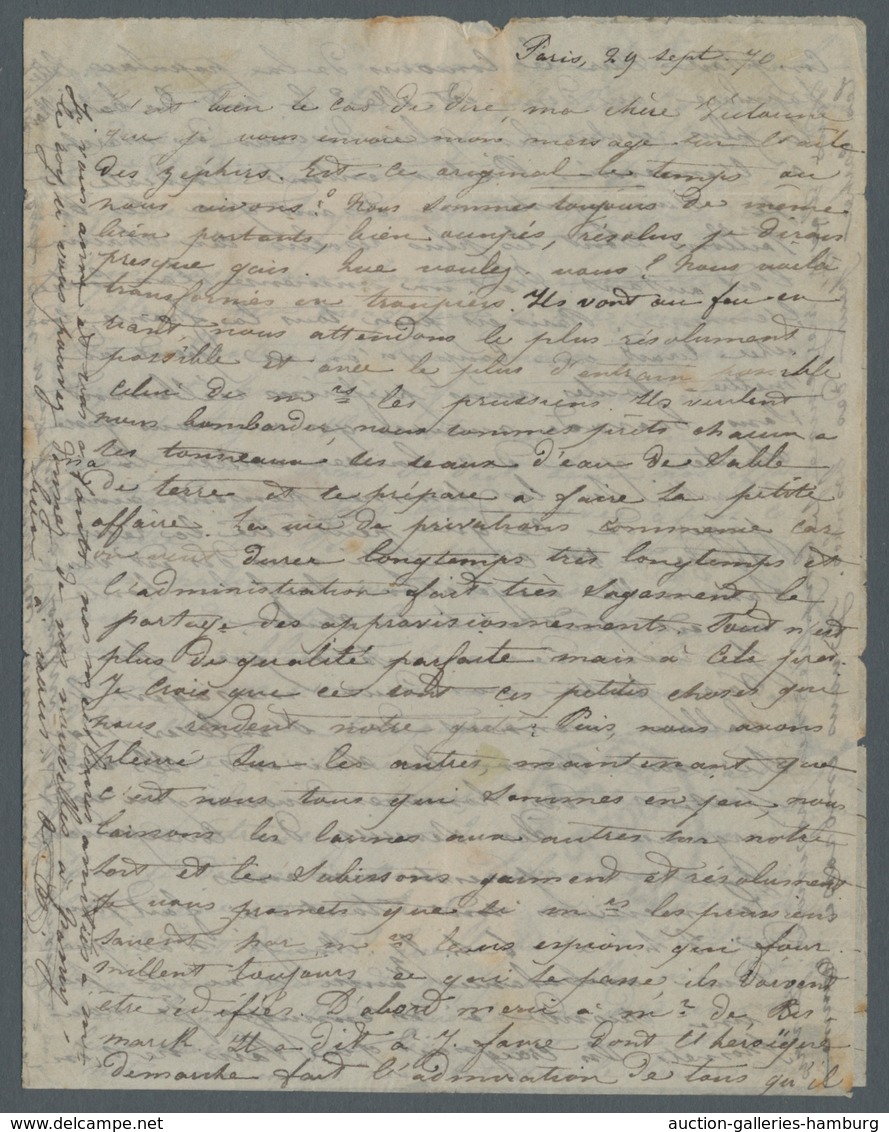 Paris, 29 sept. 70
C'est bien le cas de dire, ma chère
que je vous envoie mon message sur l'aile
des zéphirs. Est-ce original le temps où
nous vivons? Nous sommes toujours de même
bien portants, bien occupés, résolus, je dirais
presque gais. Que voulez-vous? Nous voilà
transformés en troupiers. Ils vont au feu en
riant, nous attendons le plus résolument
possible et avec le plus d'entrain possible
celui de mrs les prussiens. Ils veulent
nous bombarder, nous sommes prêts chacun a
ses tonneaux ses seaux d'eau de sable
de terre et se prépare à faire sa petite
affaire. La vie de privations commence car
on veut durer longtemps très longtemps et
l'administration fait très sagement le
partage des approvisionnements. Tout n'est
plus de qualité parfaite mais à cela près.
Je crois que ce sont ces petites choses que
nous rendent notre gaité: Puis, nous avons
pleuré sur les autres, maintenant que
c'est nous tous qui sommes en jeu, nous
laissons les larmes aux autres sur notre
sort et le subissons gaiment et résolument
Je vous promets que si mrs les prussiens
savent par mrs leurs espions qui four
millent toujours ce qui se passe ils doivent
être édifiés. D'abord merci à mr de Bis
marck Il a dit à J. Favre dont l'héroïque
démarche fait l'admiration de tous qu'il
Je vous aime et vous
nos meilleures amitiés à
si vous pouvez donner de nos nouvelles à
bien à vous.
auction-galleries-hamburg